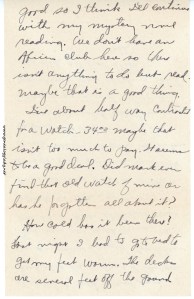 good so I think Del continues
with my mystery novel
reading. We don't have an
African Club here so there
isn't anything to do but read.
maybe that is a good thing.
I'm about half way
for a watch. 34.00 maybe that
isn't too much to pay. Seems
to be a good deal. Did mark ever
find that old watch of mine or
has he forgotten all about it?
How cold has it been there?
Last night I had to go to bed to
get my feet warm. The decks
are several feet off the ground